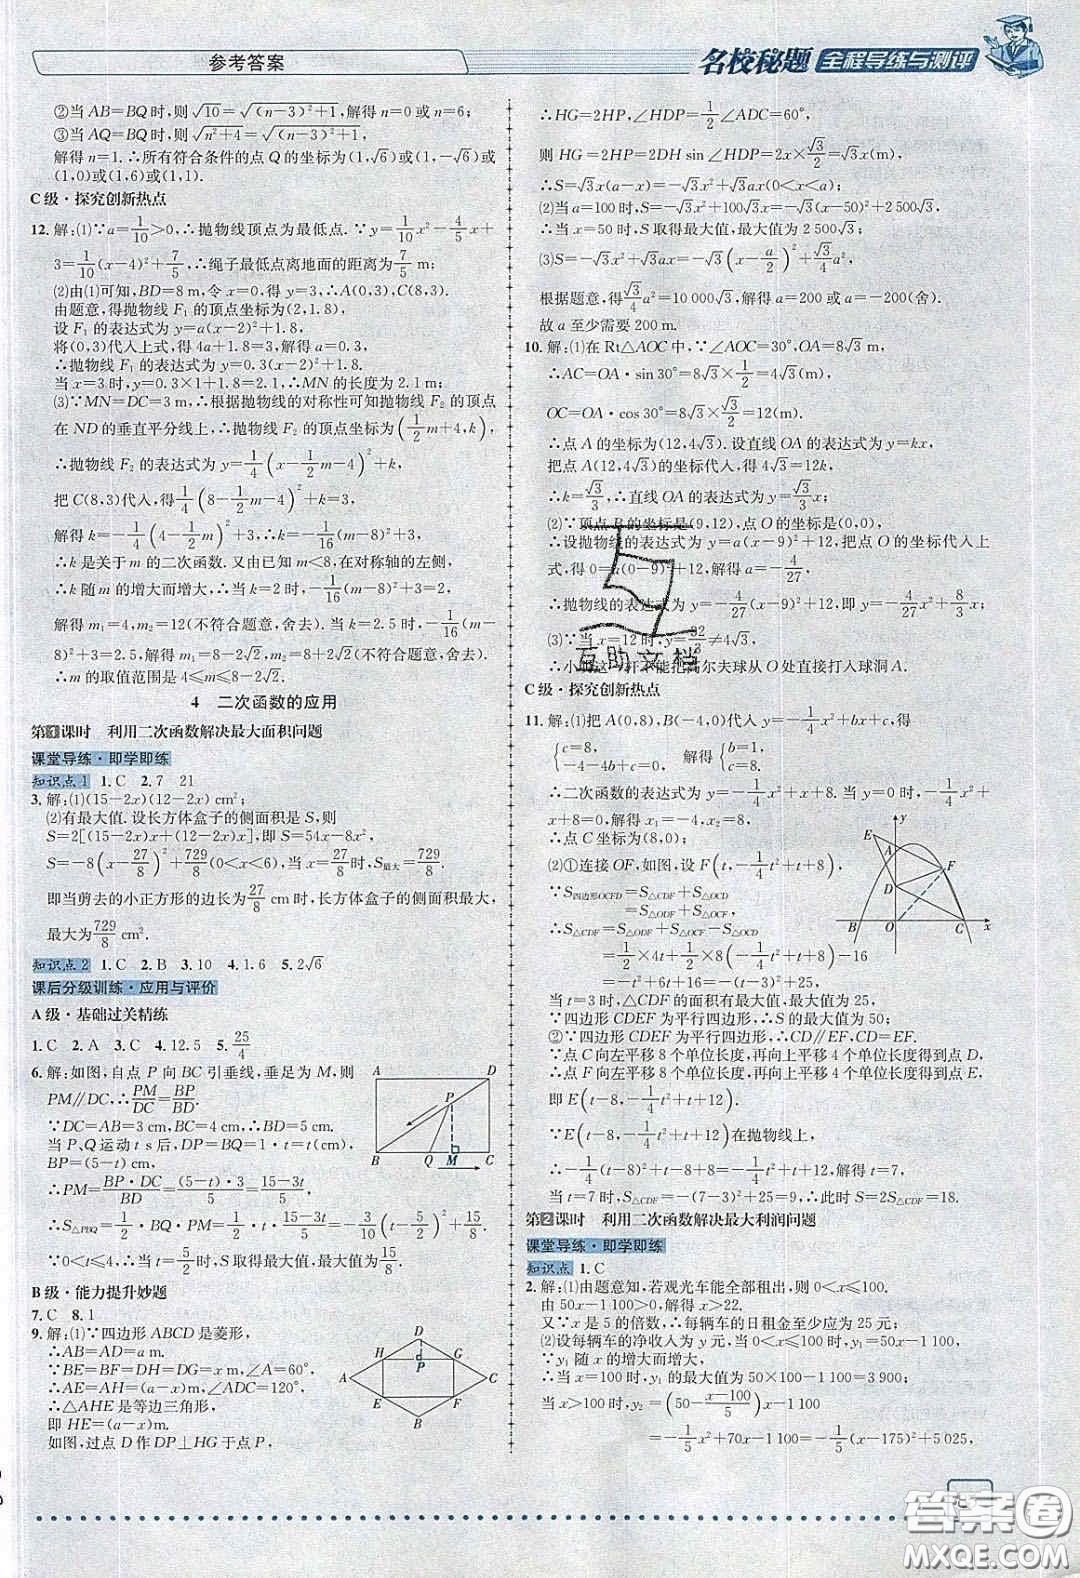 参考答案
名校秘题 全程导练与测评
②当AB=BQ时,则√10=√((n-3)²+1),解得n=0或n=6;
③当AQ=BQ时,则√(n²+4)=√((n-3)²+1),
解得n=1.∴所有符合条件的点Q的坐标为(1,√6)或(1,-√6)或
(1,0)或(1,6)或(1,1).
C级·探究创新热点
12.解:(1)∵a=1/10>0,∴抛物线顶点为最低点.∵y=1/10x²-4/5x+
3=1/10(x-4)²+7/5,∴绳子最低点离地面的距离为7/5 m;
(2)由(1)可知,BD=8 m,令x=0.得y=3,∴A(0,3),C(8,3).
由题意,得抛物线F₁的顶点坐标为(2,1.8),
设F₁的表达式为y=a(x-2)²+1.8,
将(0,3)代入上式,得4a+1.8=3,解得a=0.3,
∴抛物线F₁的表达式为y=0.3(x-2)²+1.8.
当x=3时,y=0.3×1+1.8=2.1,∴MN的长度为2.1 m;
(3)∵MN=DC=3 m,∴根据抛物线的对称性可知抛物线F₂的顶点
在ND的垂直平分线上,∴抛物线F₂的顶点坐标为(1/2m+4,k),
∴抛物线F₂的表达式为y=1/4(x-1/2m-4)²+k,
把C(8,3)代入,得1/4(8-1/2m-4)²+k=3,
解得k=-1/4(4-1/2m)²+3=-1/16(m-8)²+3,
∴k是关于m的二次函数.又由已知m<8,在对称轴的左侧,
∴k随m的增大而增大,∴当k=2时,-1/16(m-8)²+3=2,
解得m₁=4,m₂=12(不符合题意,舍去).当k=2.5时,-1/16(m-
8)²+3=2.5,解得m₁=8-2√2,m₂=8+2√2(不符合题意,舍去).
∴m的取值范围是4≤m≤8-2√2.
4 二次函数的应用
第1课时 利用二次函数解决最大面积问题
课堂导练·即学即练
知识点1 1.C 2.7 21
3.解:(1)(15-2x)(12-2x) cm²;
(2)有最大值.设长方体盒子的侧面积是S,则
S=2[(15-2x)x+(12-2x)x],即S=54x-8x²,
S=-8(x-27/8)²+729/8(0<x<6),当x=27/8时,S最大=729/8.
即当剪去的小正方形的边长为27/8 cm时,长方体盒子的侧面积
最大为729/8 cm².
知识点2 1.C 2.B 3.10 4.1.6 5.2√6
课后分级训练·应用与评价
A级·基础过关精练
1.C 2.A 3.C 4.12.5 5.25/4
6.解:如图,自点P向BC引垂线,垂足为M,则
PM∥DC,∴PM/DC=BP/BD.
∵DC=AB=3 cm,BC=4 cm,∴BD=5 cm.
当P、Q运动t s后,DP=BQ=1·t=t(cm),
BP=(5-t) cm,
∴PM=BP·DC/BD=(5-t)·3/5=15-3t/5,
∴S△PBQ=1/2·BQ·PM=1/2·t·15-3t/5=-3/10(t-5/2)²+15/8.
∵0<t≤5,∴当t=5/2时,S取得最大值,最大值为15/8.
A D P B Q M C
B级·能力提升妙题
7.C 8.1
9.解:(1)∵四边形ABCD是菱形,
∴AB=AD=a m.
∵BE=BF=DH=DG=x m,∠A=60°,
∴AE=AH=(a-x)m,∠ADC=120°,
∴△AHE是等边三角形,
即HE=(a-x)m.
如图,过点D作DP⊥HG于点P,
D H P G A C E F B
∴HG=2HP,∠HDP=1/2∠ADC=60°,
则HG=2HP=2DH sin∠HDP=2x×√3/2=√3x(m),
∴S=√3x(a-x)=-√3x²+√3ax(0<x<a);
(2)当a=100时,S=-√3x²+100√3x=-√3(x-50)²+2 500√3,
∴当x=50时,S取得最大值,最大值为2 500√3;
(3)S=-√3x²+√3ax=-√3(x-a/2)²+√3/4a²,
根据题意,得√3/4a²=10 000√3,解得a=200或a=-200(舍).
故a至少需要200 m.
10.解:(1)在Rt△AOC中,∵∠AOC=30°,OA=8√3 m,
∴AC=OA·sin 30°=8√3×1/2=4√3(m),
OC=OA·cos 30°=8√3×√3/2=12(m).
∴点A的坐标为(12,4√3).设直线OA的表达式为y=kx,
把点A(12,4√3)的坐标代入,得4√3=12k,
∴k=√3/3,∴直线OA的表达式为y=√3/3x;
(2)∵顶点B的坐标是(9,12),点O的坐标为(0,0),
∴设抛物线的表达式为y=a(x-9)²+12,把点O的坐标代入上
式,得0=a(0-9)²+12,解得a=-4/27,
∴抛物线的表达式为y=-4/27(x-9)²+12,即y=-4/27x²+8/3x;
(3)∵当x=12时,y=32/3≠4√3,
∴小明这一杆不能把高尔夫球从O处直接打入球洞A.
互助文档
C级·探究创新热点
11.解:(1)把A(0,8),B(-4,0)代入y=-1/4x²+bx+c,得
{c=8, -4-4b+c=0, 解得{b=1, c=8.
∴二次函数的表达式为y=-1/4x²+x+8.当y=0时,-1/4x²+
x+8=0,解得x₁=-4,x₂=8.
∴点C坐标为(8,0);
(2)①连接OF,如图,设F(t,-1/4t²+t+8),
∵S四边形OCFD=S△CDF+S△OCD
=S△ODF+S△OCF,
∴S△CDF=S△ODF+S△OCF-S△OCD
y E A F D B O C x
=-t²+6t+16=-(t-3)²+25,
当t=3时,△CDF的面积有最大值,最大值为25.
∵四边形CDEF为平行四边形,∴S的最大值为50;
②∵四边形CDEF为平行四边形,∴CD∥EF,CD=EF.
∵点C向左平移8个单位长度,再向上平移4个单位长度得到点D,
∴点F向左平移8个单位长度,再向上平移4个单位长度得到点E,
即E(t-8,-1/4t²+t+12).
∵E(t-8,-1/4t²+t+12)在抛物线上,
∴-1/4(t-8)²+t-8+8=-1/4t²+t+12,解得t=7.
当t=7时,S△CDF=-(7-3)²+25=9,∴此时S=2S△CDF=18.
第2课时 利用二次函数解决最大利润问题
课堂导练·即学即练
知识点 1.C
2.解:(1)由题意知,若观光车能全部租出,则0<x≤100.
由50x-1 100>0,解得x>22.
又∵x是5的倍数,∴每辆车的日租金至少应为25元;
(2)设每辆车的净收入为y元,当0<x≤100时,y₁=50x-1 100.
∵y₁随x的增大而增大,
∴当x=100时,y₁的最大值为50×100-1 100=3 900;
当x>100时,y₂=(50-x-100/5)x-1100
=-1/5x²+70x-1 100=-1/5(x-175)²+5 025,
答案圈
MXQE.COM